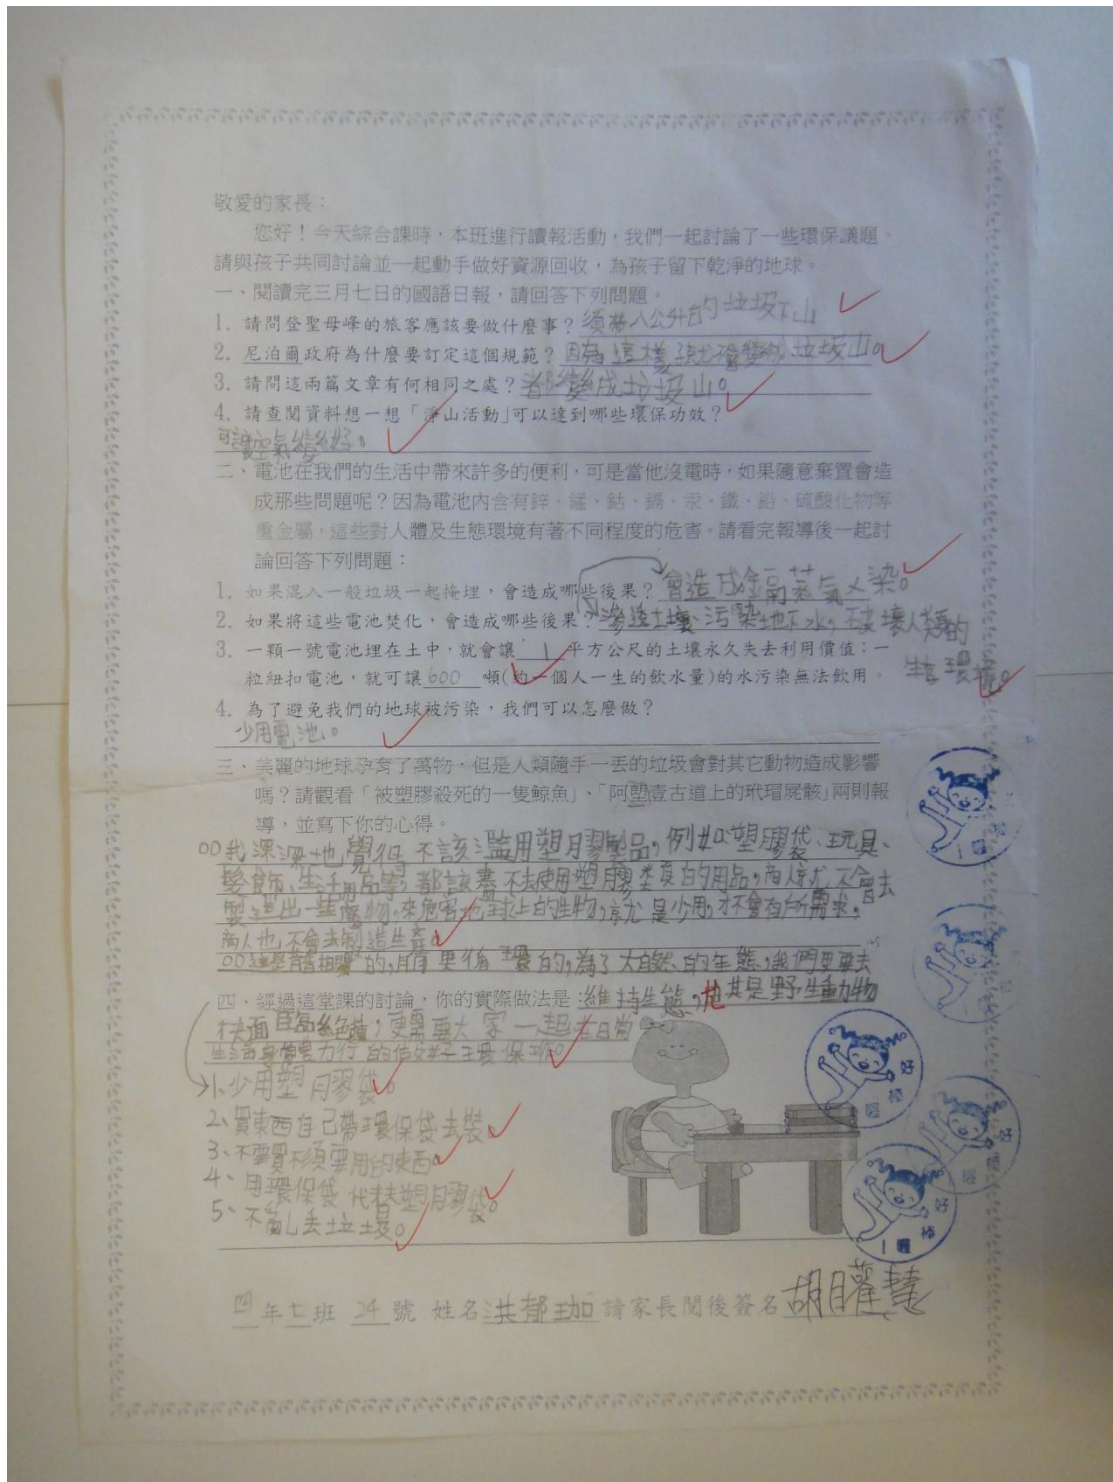 敬愛的家長：
您好！今天綜合課時，本班進行讀報活動，我們一起討論了一些環保議題，
請與孩子共同討論並一起動手做好資源回收，為孩子留下乾淨的地球。
一、閱讀完三月七日的國語日報，請回答下列問題。
1. 請問登聖母峰的旅客應該要做什麼事？須帶八公斤的垃圾下山
2. 尼泊爾政府為什麼要訂定這個規範？因為這樣就會變成垃圾山。
3. 請問這兩篇文章有何相同之處？都變成垃圾山。
4. 請查閱資料想一想「淨山活動」可以達到哪些環保功效？
可讓空氣變好。
二、電池在我們的生活中帶來許多的便利，可是當他沒電時，如果隨意棄置會造
成那些問題呢？因為電池內含有鋅、錳、鈷、鎘、汞、鐵、鉛、硫酸化物等
重金屬，這些對人體及生態環境有著不同程度的危害。請看完報導後一起討
論回答下列問題：
1. 如果混入一般垃圾一起掩埋，會造成哪些後果？會造成鎘蒸氣染。
2. 如果將這些電池焚化，會造成哪些後果？滲透土壤、污染地下水，破壞人類的
生環境。
3. 一顆一號電池埋在土中，就會讓 1 平方公尺的土壤永久失去利用價值；一
粒鈕扣電池，就可讓 600 噸(約一個人一生的飲水量)的水污染無法飲用。
4. 為了避免我們的地球被污染，我們可以怎麼做？
少用電池。
三、美麗的地球孕育了萬物，但是人類隨手一丟的垃圾會對其它動物造成影響
嗎？請觀看「被塑膠殺死的一隻鯨魚」、「阿塱壹古道上的玳瑁屍骸」兩則報
導，並寫下你的心得。
我深深地覺得不該濫用塑膠製品，例如塑膠袋、玩具、
髮飾、生活用品等，都該盡不去使用塑膠類的用品，商人就不會去
製造出一些廢物，來危害地球上的生物，就是少用，才不會有所需求。
商人也不會去制造生產。
這是的，循環的，為了大自然的生態，我們更要去
四、經過這堂課的討論，你的實際做法是：維持生態，尤其是野生動物
更需要大家一起在日常
生活身體力行的作好環保工作。
1、少用塑膠袋。
2、買東西自己帶環保袋去裝。
3、不要買不須要用的東西。
4、用環保袋代替塑膠袋。
5、不亂丟垃圾。
四年七班 24 號 姓名 洪郁珈 請家長閱後簽名
好棒喔！
好棒喔！
好棒喔！
好棒喔！